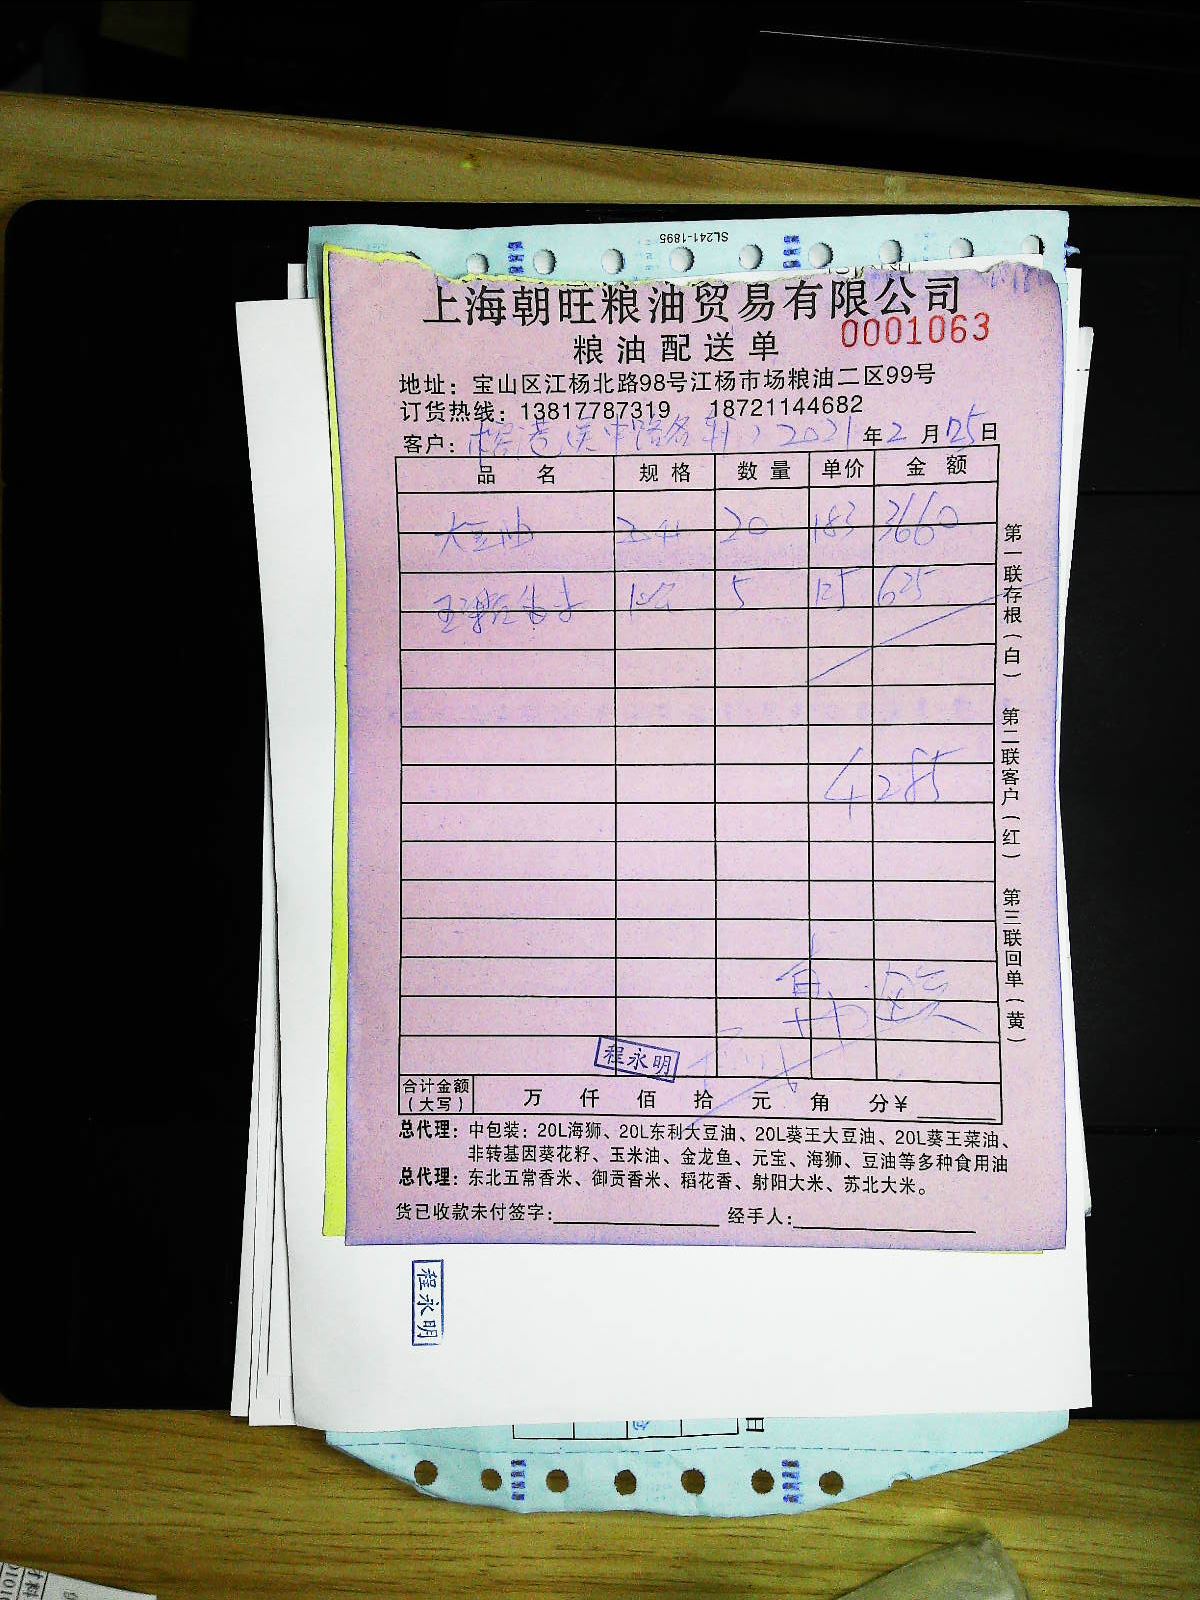 SL241-1895
上海朝旺粮油贸易有限公司
0001063
粮油配送单
地址：宝山区江杨北路98号江杨市场粮油二区99号
订货热线：13817787319 18721144682
客户： 2021年2月25日
品 名 规 格 数 量 单价 金 额
大豆油 20 183 3660
5 125 625
4285
第一联存根（白） 第二联客户（红） 第三联回单（黄）
程永明
合计金额（大写） 万 仟 佰 拾 元 角 分￥
总代理：中包装：20L海狮、20L东利大豆油、20L葵王大豆油、20L葵王菜油、
非转基因葵花籽、玉米油、金龙鱼、元宝、海狮、豆油等多种食用油
总代理：东北五常香米、御贡香米、稻花香、射阳大米、苏北大米。
货已收款未付签字： 经手人：
程永明